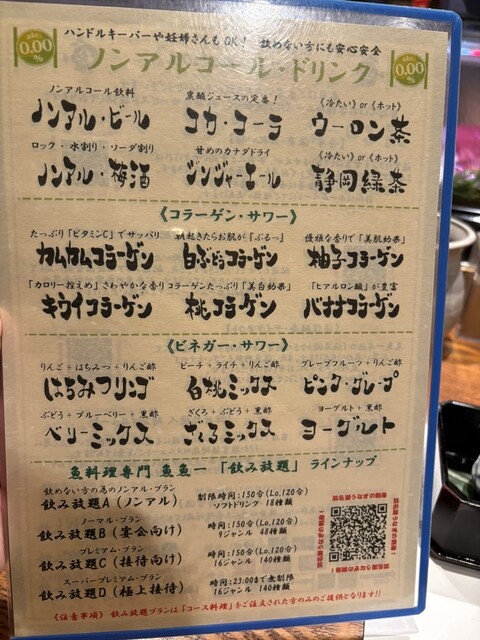 ハンドルキーパーや妊婦さんもOK! 飲めない方にも安心安全
0.00
%
ノンアルコール・ドリンク
0.00
%
ノンアルコール飲料
ノンアル・ビール
炭酸ジュースの定番!
コカ・コーラ
《冷たい》or《ホット》
ウーロン茶
ロック・水割り・ソーダ割り
ノンアル・梅酒
甘めのカナダドライ
ジンジャーエール
《冷たい》or《ホット》
静岡緑茶
《コラーゲン・サワー》
たっぷり「ビタミンC」でサッパリ
カムカムコラーゲン
朝起きたらお肌が「ぷるっ」
白ぶどうコラーゲン
優雅な香りで「美肌効果」
柚子コラーゲン
「カロリー控えめ」さわやかな香り
キウイコラーゲン
コラーゲンたっぷり「美白効果」
桃コラーゲン
「ヒアルロン酸」が豊富
バナナコラーゲン
《ビネガー・サワー》
りんご+はちみつ+りんご酢
はちみつリンゴ
ピーチ+ライチ+りんご酢
白桃ミックス
グレープフルーツ+りんご酢
ピンク・グレープ
ぶどう+ブルーベリー+黒酢
ベリーミックス
ざくろ+ぶどう+黒酢
ざくろミックス
ヨーグルト+黒酢
ヨーグルト
魚料理専門 魚魚一 「飲み放題」 ラインナップ
飲めない方の為のノンアル・プラン
飲み放題A(ノンアル)
制限時間:150分(Lo,120分)
ソフトドリンク 18種類
ノーマル・プラン
飲み放題B(宴会向け)
制限時間:150分(Lo,120分)
9ジャンル 48種類
プレミアム・プラン
飲み放題C(接待向け)
制限時間:150分(Lo,120分)
16ジャンル 140種類
スーパープレミアム・プラン
飲み放題D(極上接待)
制限時間:23:00まで無制限
16ジャンル 140種類
《注意事項》 飲み放題プランは「コース料理」をご注文された方のみのご提供となります!!